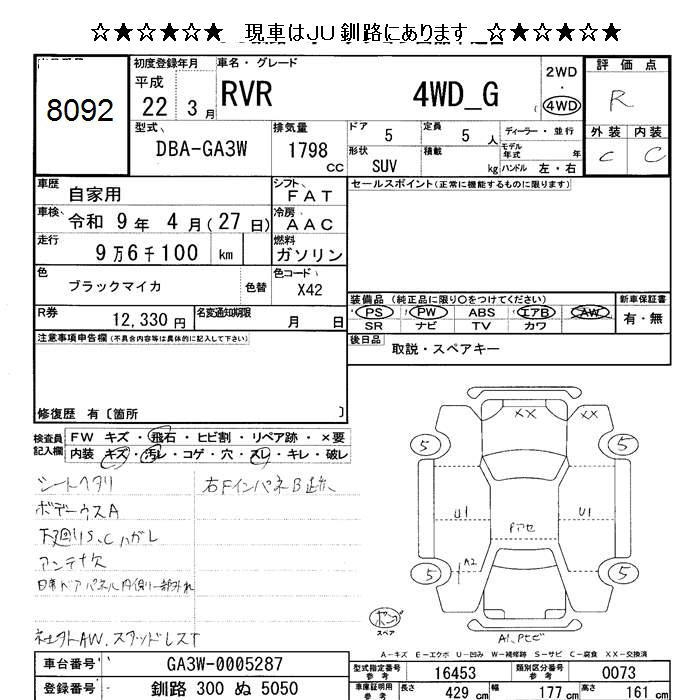 ☆★☆★☆★ 現車はJU釧路にあります ☆★☆★☆★
8092
初度登録年月 車名・グレード 評価点
平成 22 3月 RVR 4WD_G 2WD ・ 4WD R
外装 内装
C C
型式 DBA-GA3W 排気量 1798 CC
ドア 5 定員 5 人 ディーラー・並行
形状 SUV 積載 kg モデル年式 年
ハンドル 左・右
車歴 自家用 シフト FAT セールスポイント(正常に機能するものに限ります)
車検 令和 9年 4月(27日) 冷房 AAC
走行 9万6千100 km 燃料 ガソリン
色 ブラックマイカ 色替 色コード X42
装備品 (純正品に限り〇をつけてください) 新車保証書
PS ・ PW ・ ABS ・ エアB ・ AW 有・無
SR ナビ TV カワ
R券 12,330円 名変通知期限 月 日
後日品 取説・スペアキー
注意事項申告欄(不具合内容等は具体的に記入して下さい)
修復歴 有〔箇所 〕
検査員記入欄 FW キズ・飛石・ヒビ割・リペア跡・×要
内装 キズ・汚レ・コゲ・穴・スレ・キレ・破レ
シートヘタリ 右FインパネB跡
ボデーウスA
下廻りS、Cハガレ
アンテナ欠
社外AW、スタッドレスT
XX XX
5 5
U1 U1
Pアセ
A2
5 5
スペア
A1、Pヒビ
A-キズ E-エクボ U-凹み W-補修跡 S-サビ C-腐食 XX-交換済
車台番号 GA3W-0005287
型式指定番号 参考 16453 類別区分番号 参考 0073
登録番号 釧路 300 ぬ 5050
車庫証明用 参考 長さ 429 cm 幅 177 cm 高さ 161 cm